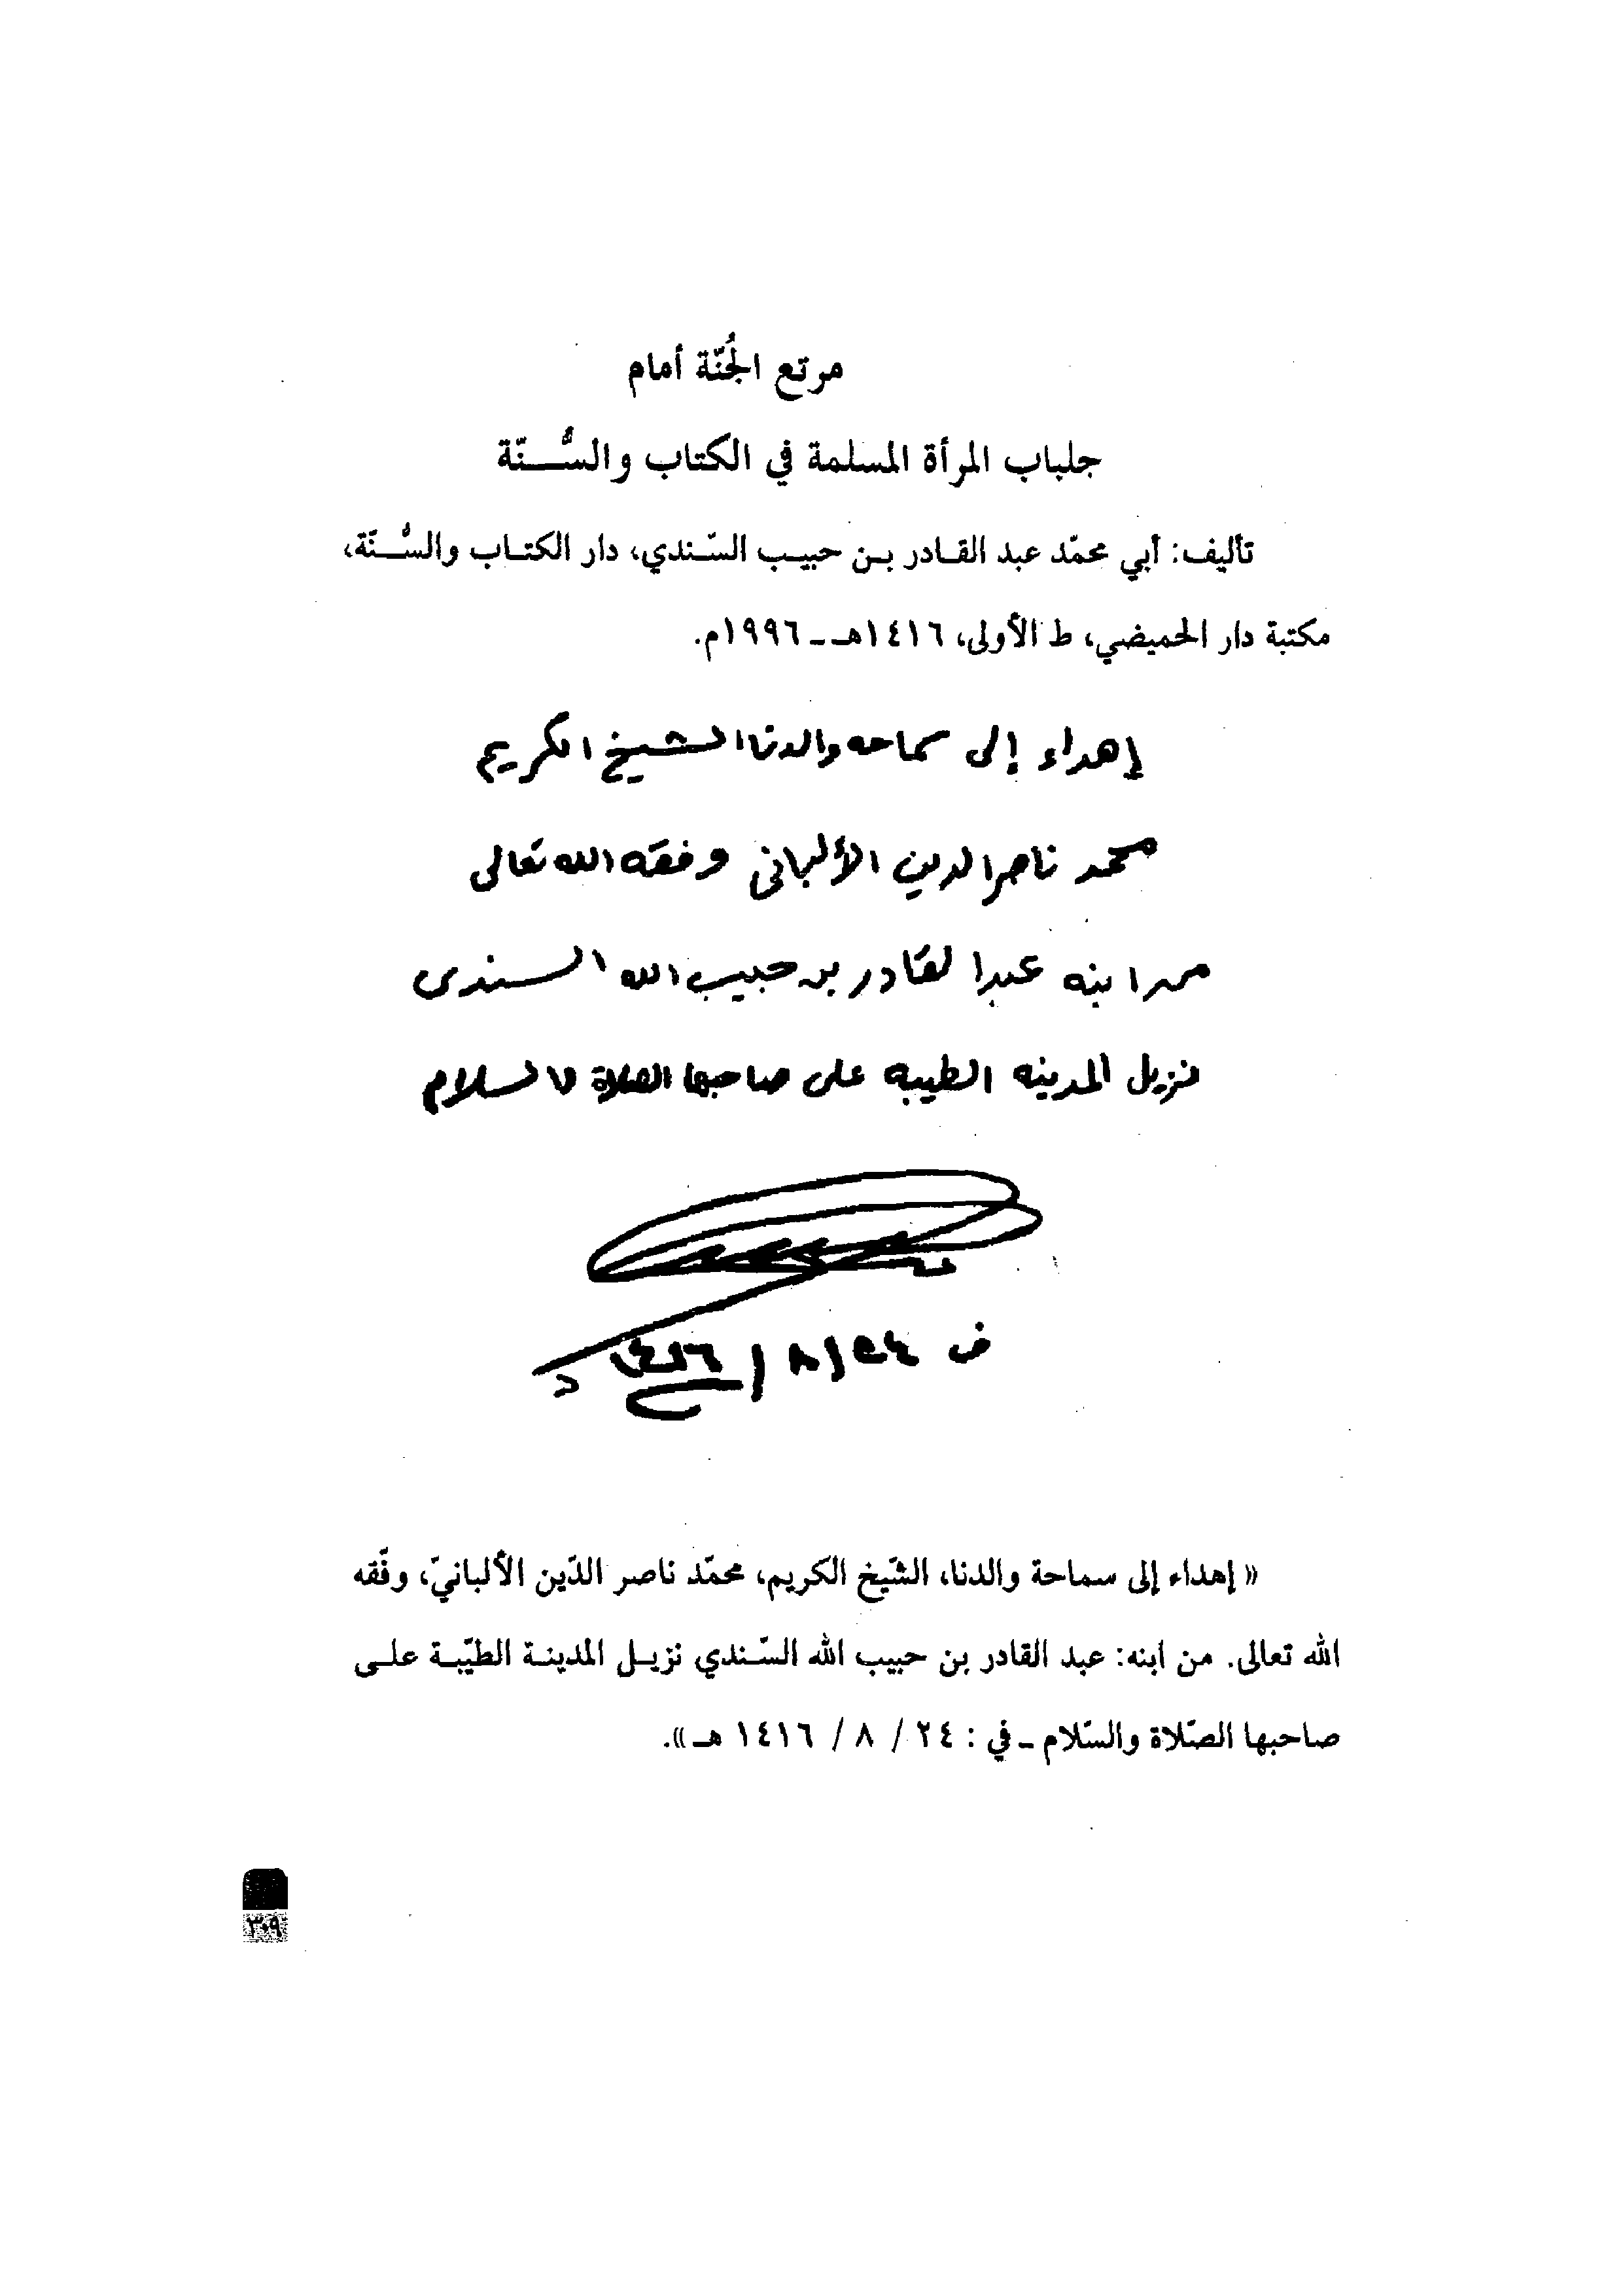 مرتع الجُنّة أمام
جلباب المرأة المسلمة في الكتاب والسُّنّة
تأليف: أبي محمّد عبد القادر بن حبيب السّندي، دار الكتاب والسُّنّة،
مكتبة دار الحميضي، ط الأولى، ١٤١٦هـ - ١٩٩٦م.
إهداء إلى سماحه والدنا الشيخ الكريم
محمد ناصر الدين الألبانى وفقه الله تعالى
من ابنه عبد القادر بن حبيب الله السندى
نزيل المدينه الطيبه على صاحبها الصلاة والسلام
فى ٢٤/٨/١٤١٦ هـ
« إهداء إلى سماحة والدنا، الشّيخ الكريم، محمّد ناصر الدّين الألبانيّ، وفّقه
الله تعالى. من ابنه: عبد القادر بن حبيب الله السّندي نزيل المدينة الطيّبة على
صاحبها الصّلاة والسّلام - في : ٢٤ / ٨ / ١٤١٦ هـ ».
٣٠٩